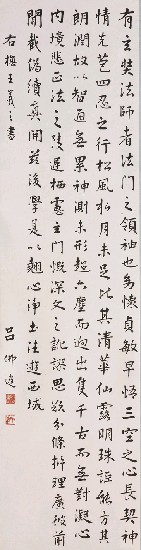 有玄奘法師者法門之領袖也幼懷貞敏早悟三空之心長契神
情先苞四忍之行松風水月未足比其清華仙露明珠詎能方其
朗潤故以智通無累神測未形超六塵而迥出隻千古而無對凝心
內境悲正法之陵遲栖慮玄門慨深文之訛謬思欲分條析理廣彼前
聞截偽續真開茲後學是以翹心淨土往遊西域
右橅王羲之書
呂佛庭